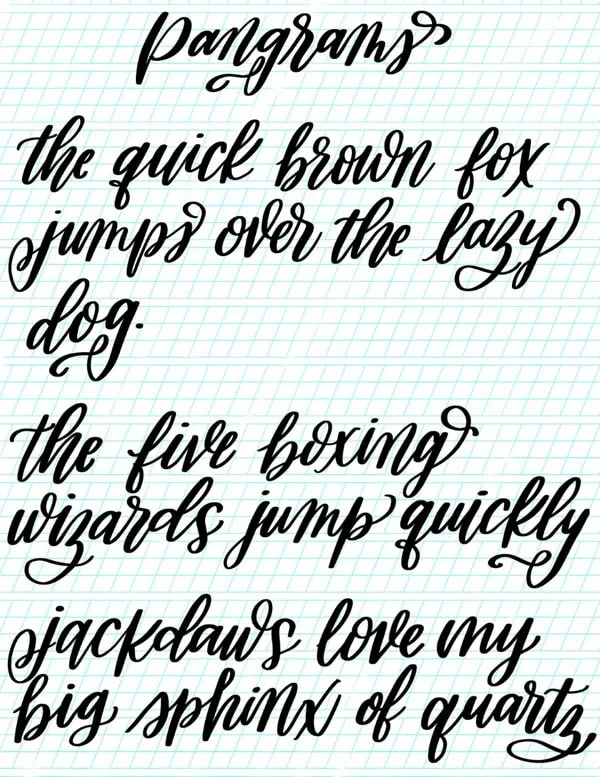 pangrams
the quick brown fox
jumps over the lazy
dog.
the five boxing
wizards jump quickly
jackdaws love my
big sphinx of quartz